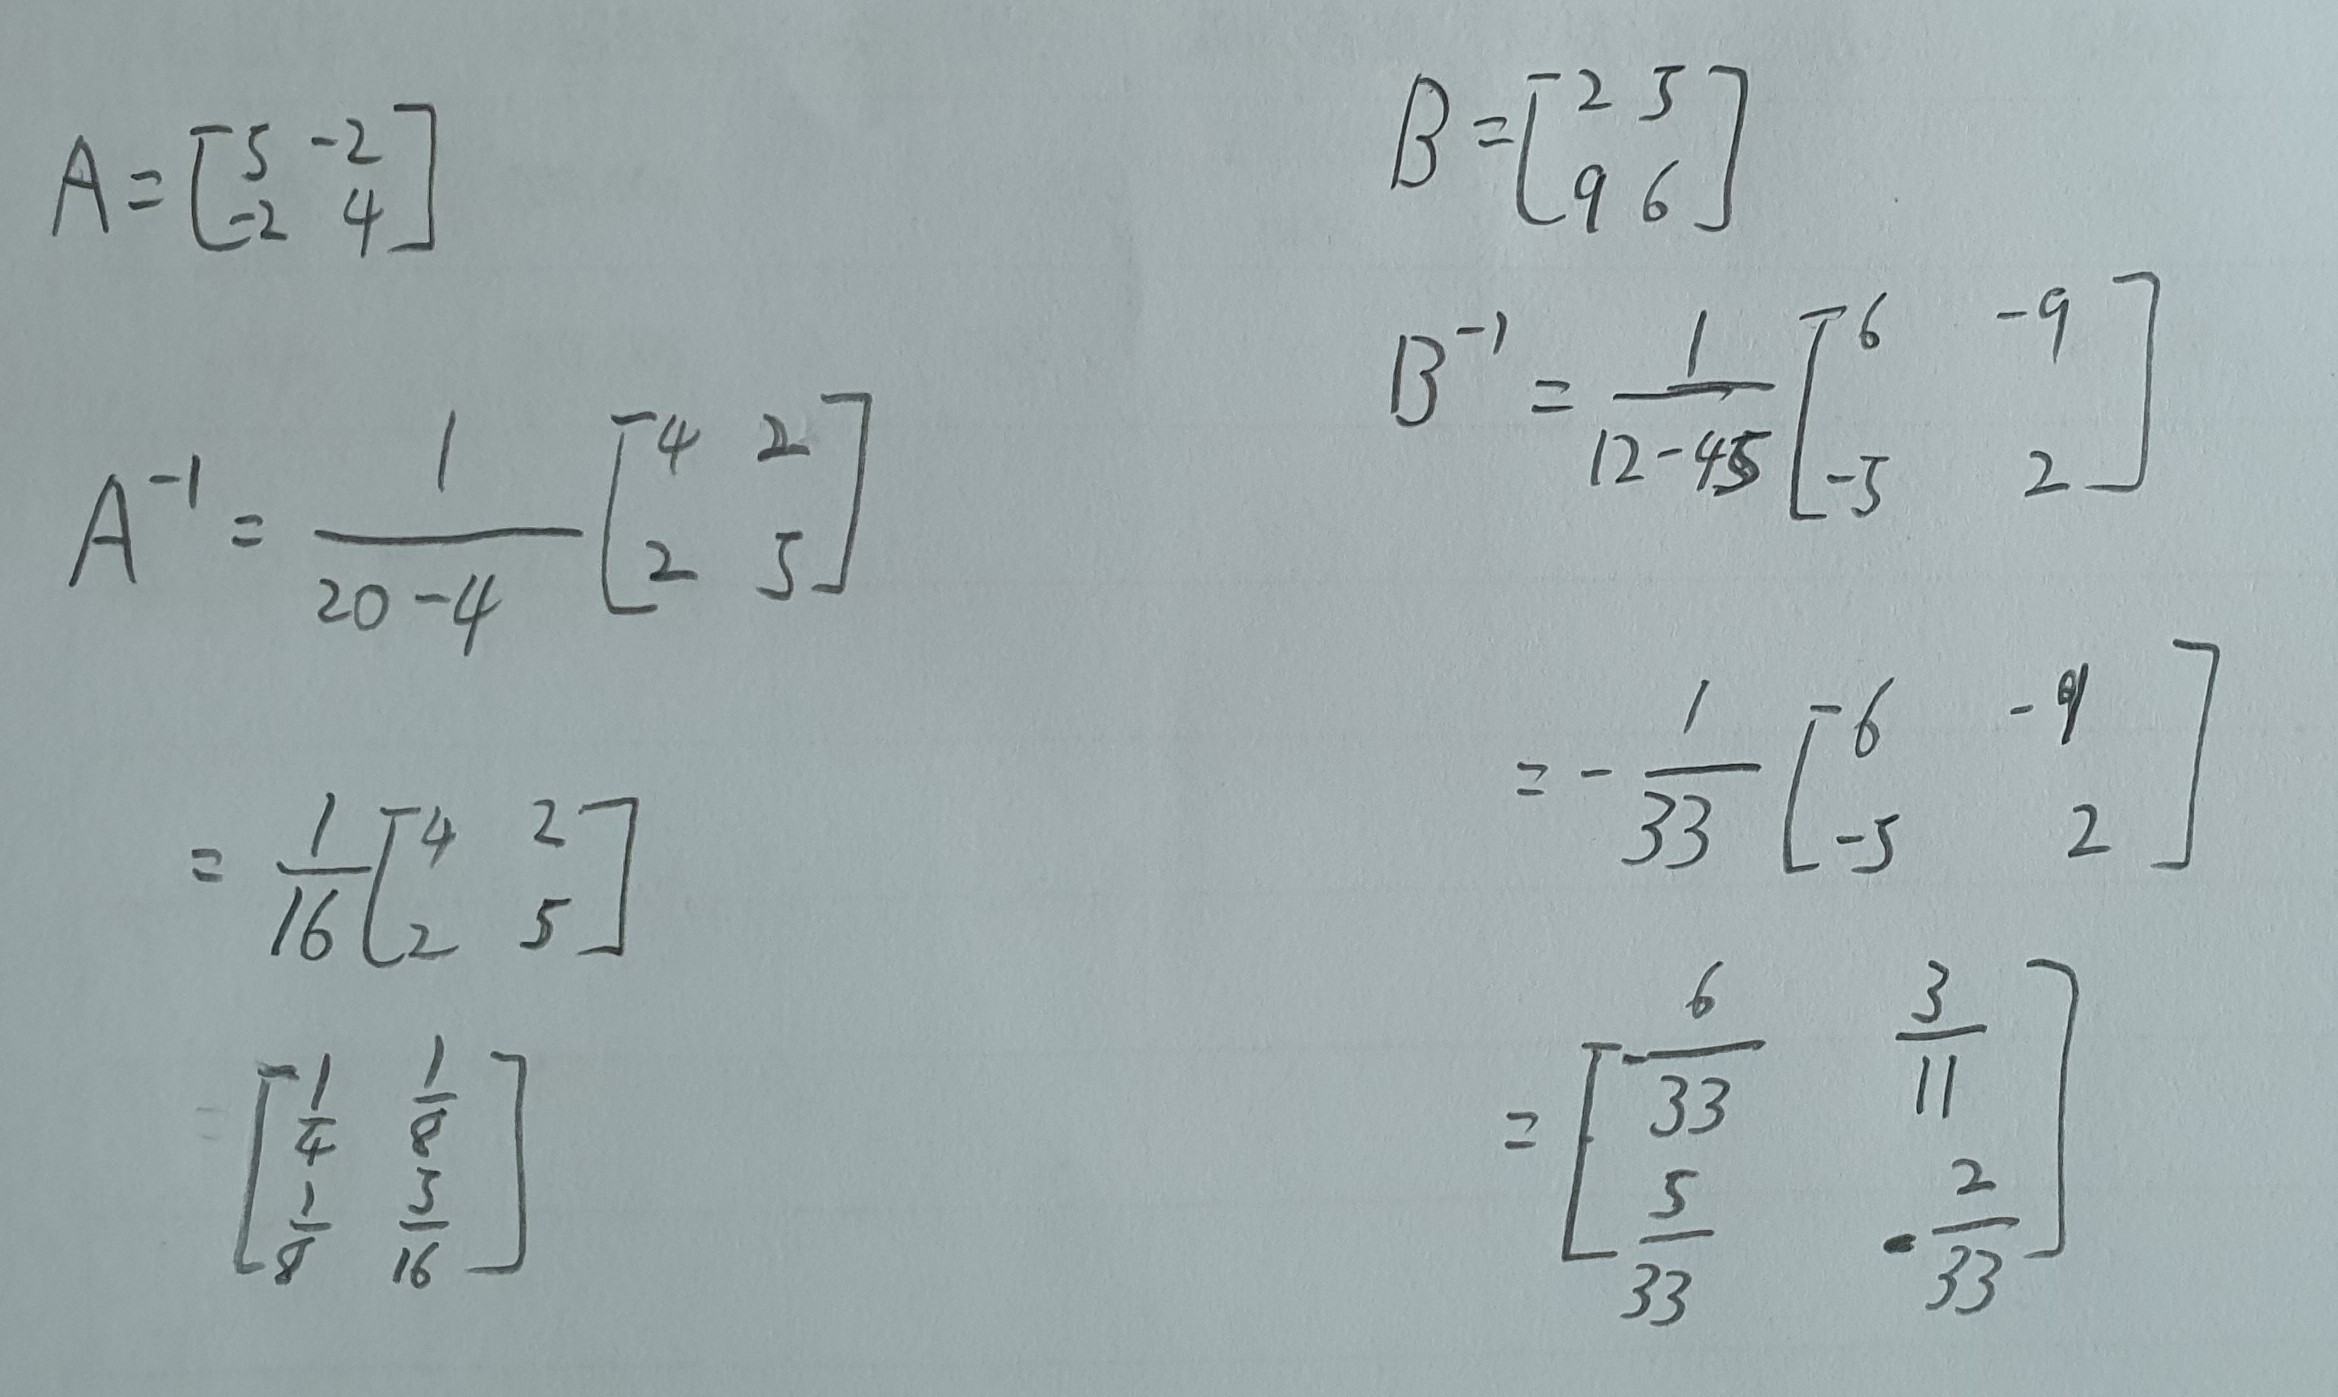 A = [5 -2
-2 4]
A⁻¹ = 1/(20-4) [4 2
2 5]
= 1/16 [4 2
2 5]
= [1/4 1/8
1/8 5/16]
B = [2 5
9 6]
B⁻¹ = 1/(12-45) [6 -9
-5 2]
= -1/33 [6 -9
-5 2]
= [-6/33 3/11
5/33 -2/33]